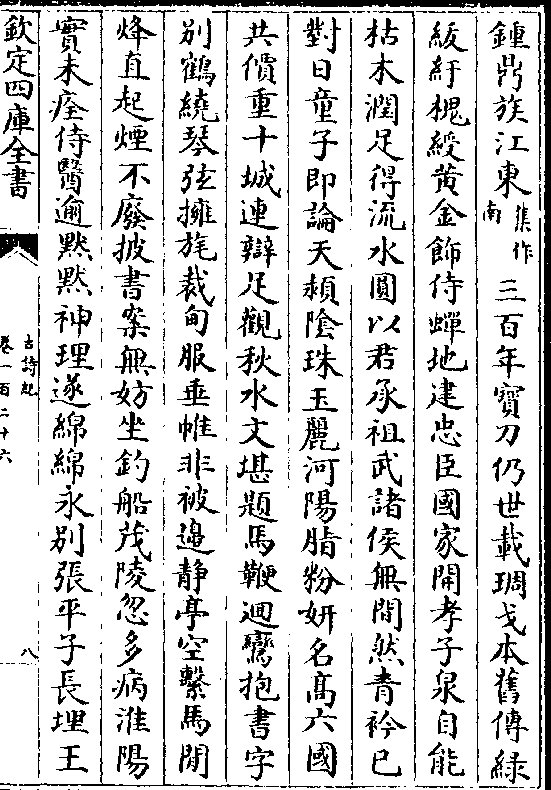 鍾鼎族江東集作南三百年寳刀仍世載琱戈本舊傳緑
綬紆槐綬黄金飾侍蟬地建忠臣國家開孝子泉自能
枯木潤足得流水圓以君承祖武諸侯無間然青衿已
對日童子即論天頳陰珠玉麗河陽脂粉妍名髙六國
共價重十城連辯足觀秋水文堪題馬鞭迴鸞抱書字
别鶴繞琴弦擁旄裁甸服垂帷非被邉静亭空繫馬閒
烽直起煙不廢披書案無妨坐釣船茂陵忽多病淮陽
實未痊侍醫逾黙黙神理遂綿綿永别張平子長埋王
欽定四庫全書
古詩紀
卷一百二十六
八